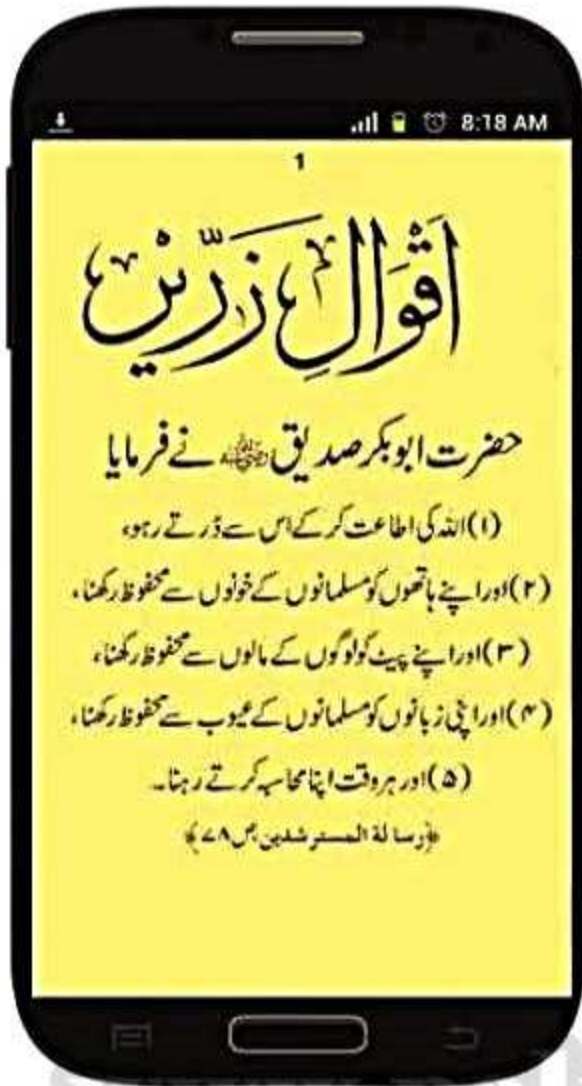 8:18 AM
1
اَقْوَالِ زَرِّیْں
حضرت ابوبکر صدیق رضی اللہ عنہ نے فرمایا
(۱) اللہ کی اطاعت کر کے اس سے ڈرتے رہو،
(۲) اور اپنے ہاتھوں کو مسلمانوں کے خونوں سے محفوظ رکھنا،
(۳) اور اپنے پیٹ کو لوگوں کے مالوں سے محفوظ رکھنا،
(۴) اور اپنی زبانوں کو مسلمانوں کے عیوب سے محفوظ رکھنا،
(۵) اور ہر وقت اپنا محاسبہ کرتے رہنا۔
﴿رسالة المسترشدین ص ۷۸﴾